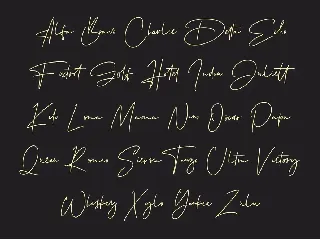 Alfa Bravo Charlie Delta Echo
Foxtrot Golf Hotel India Juliett
Kilo Lima Mama Nov Oscar Papa
Quebec Romeo Sierra Tango Ultra Victory
Whiskey Xylo Yankee Zulu